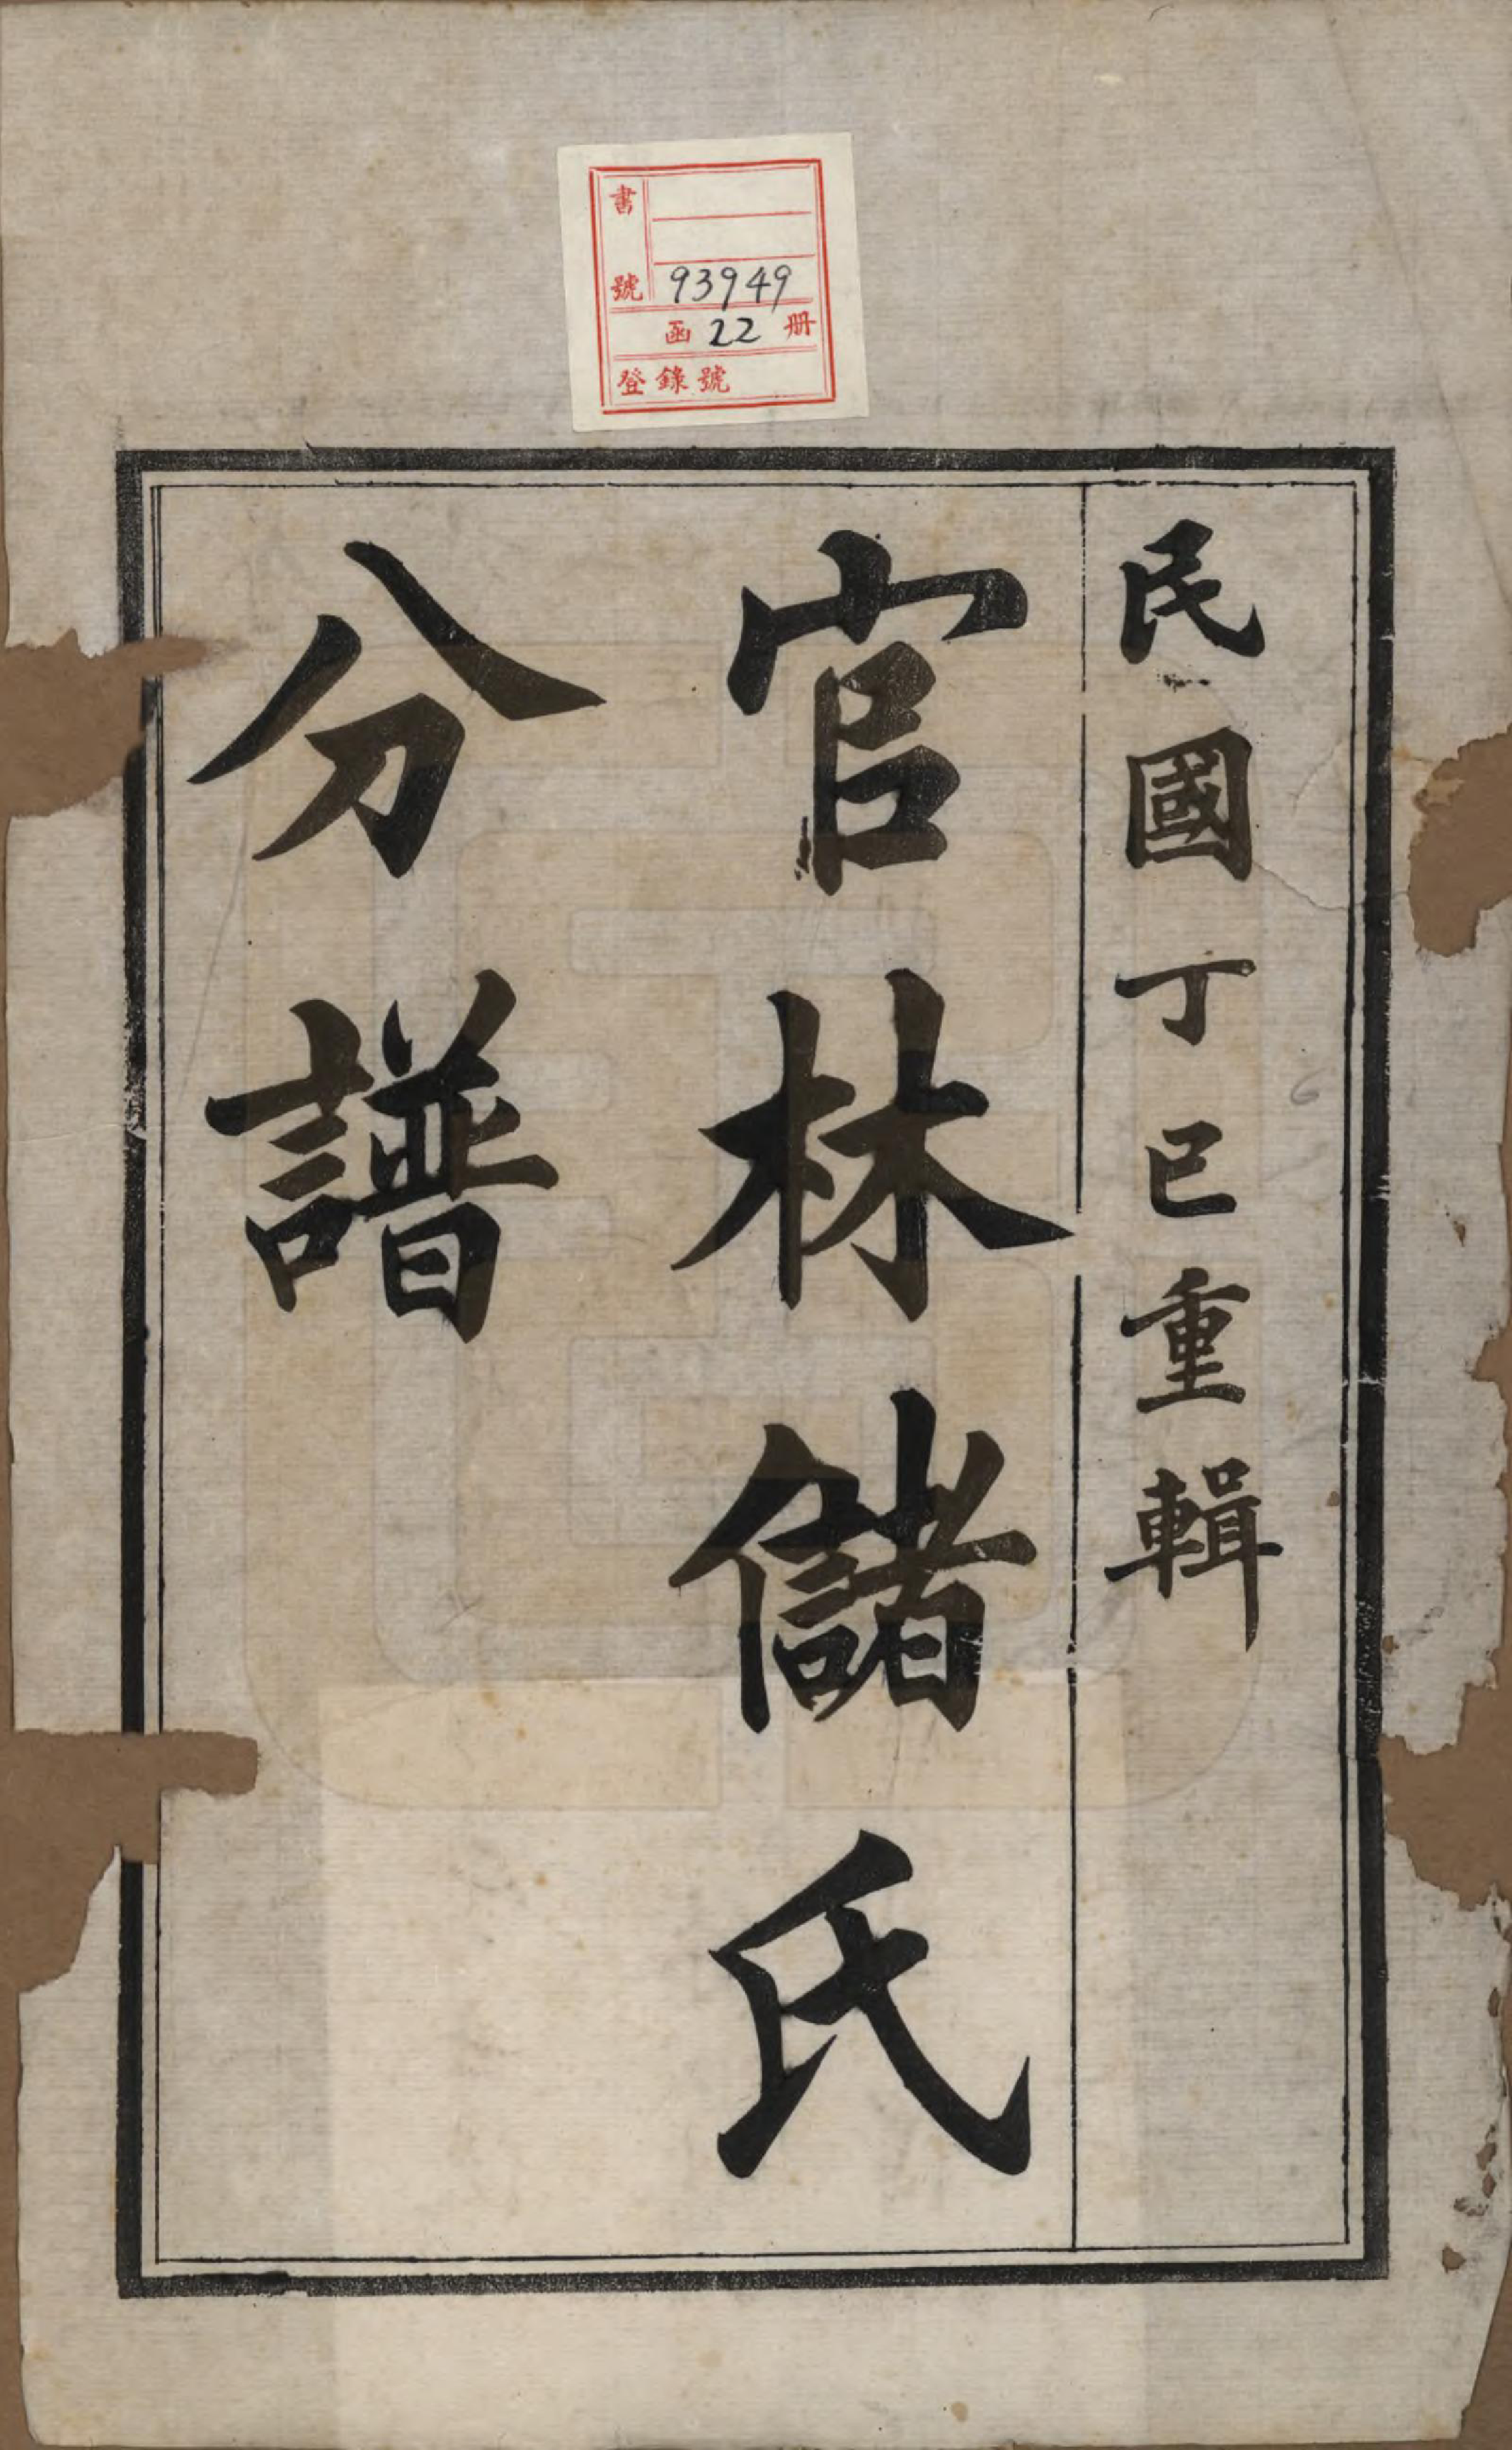 書號 93949
函 22 册
登錄號
民國丁巳重輯
官林儲氏
分譜